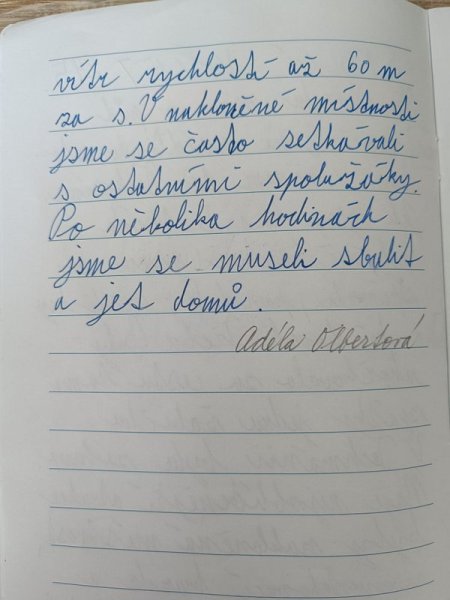 vítr rychlostí až 60 m
za s. V nakloněné místnosti
jsme se často setkávali
s ostatními spolužáky.
Po několika hodinách
jsme se museli sbalit
a jet domů.
Adéla Olbertová